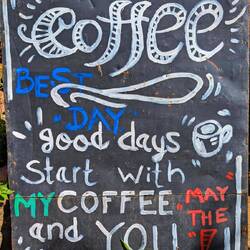 coffee
BEST
"DAY"
good days
start with
MY COFFEE MAY
and YOU THE